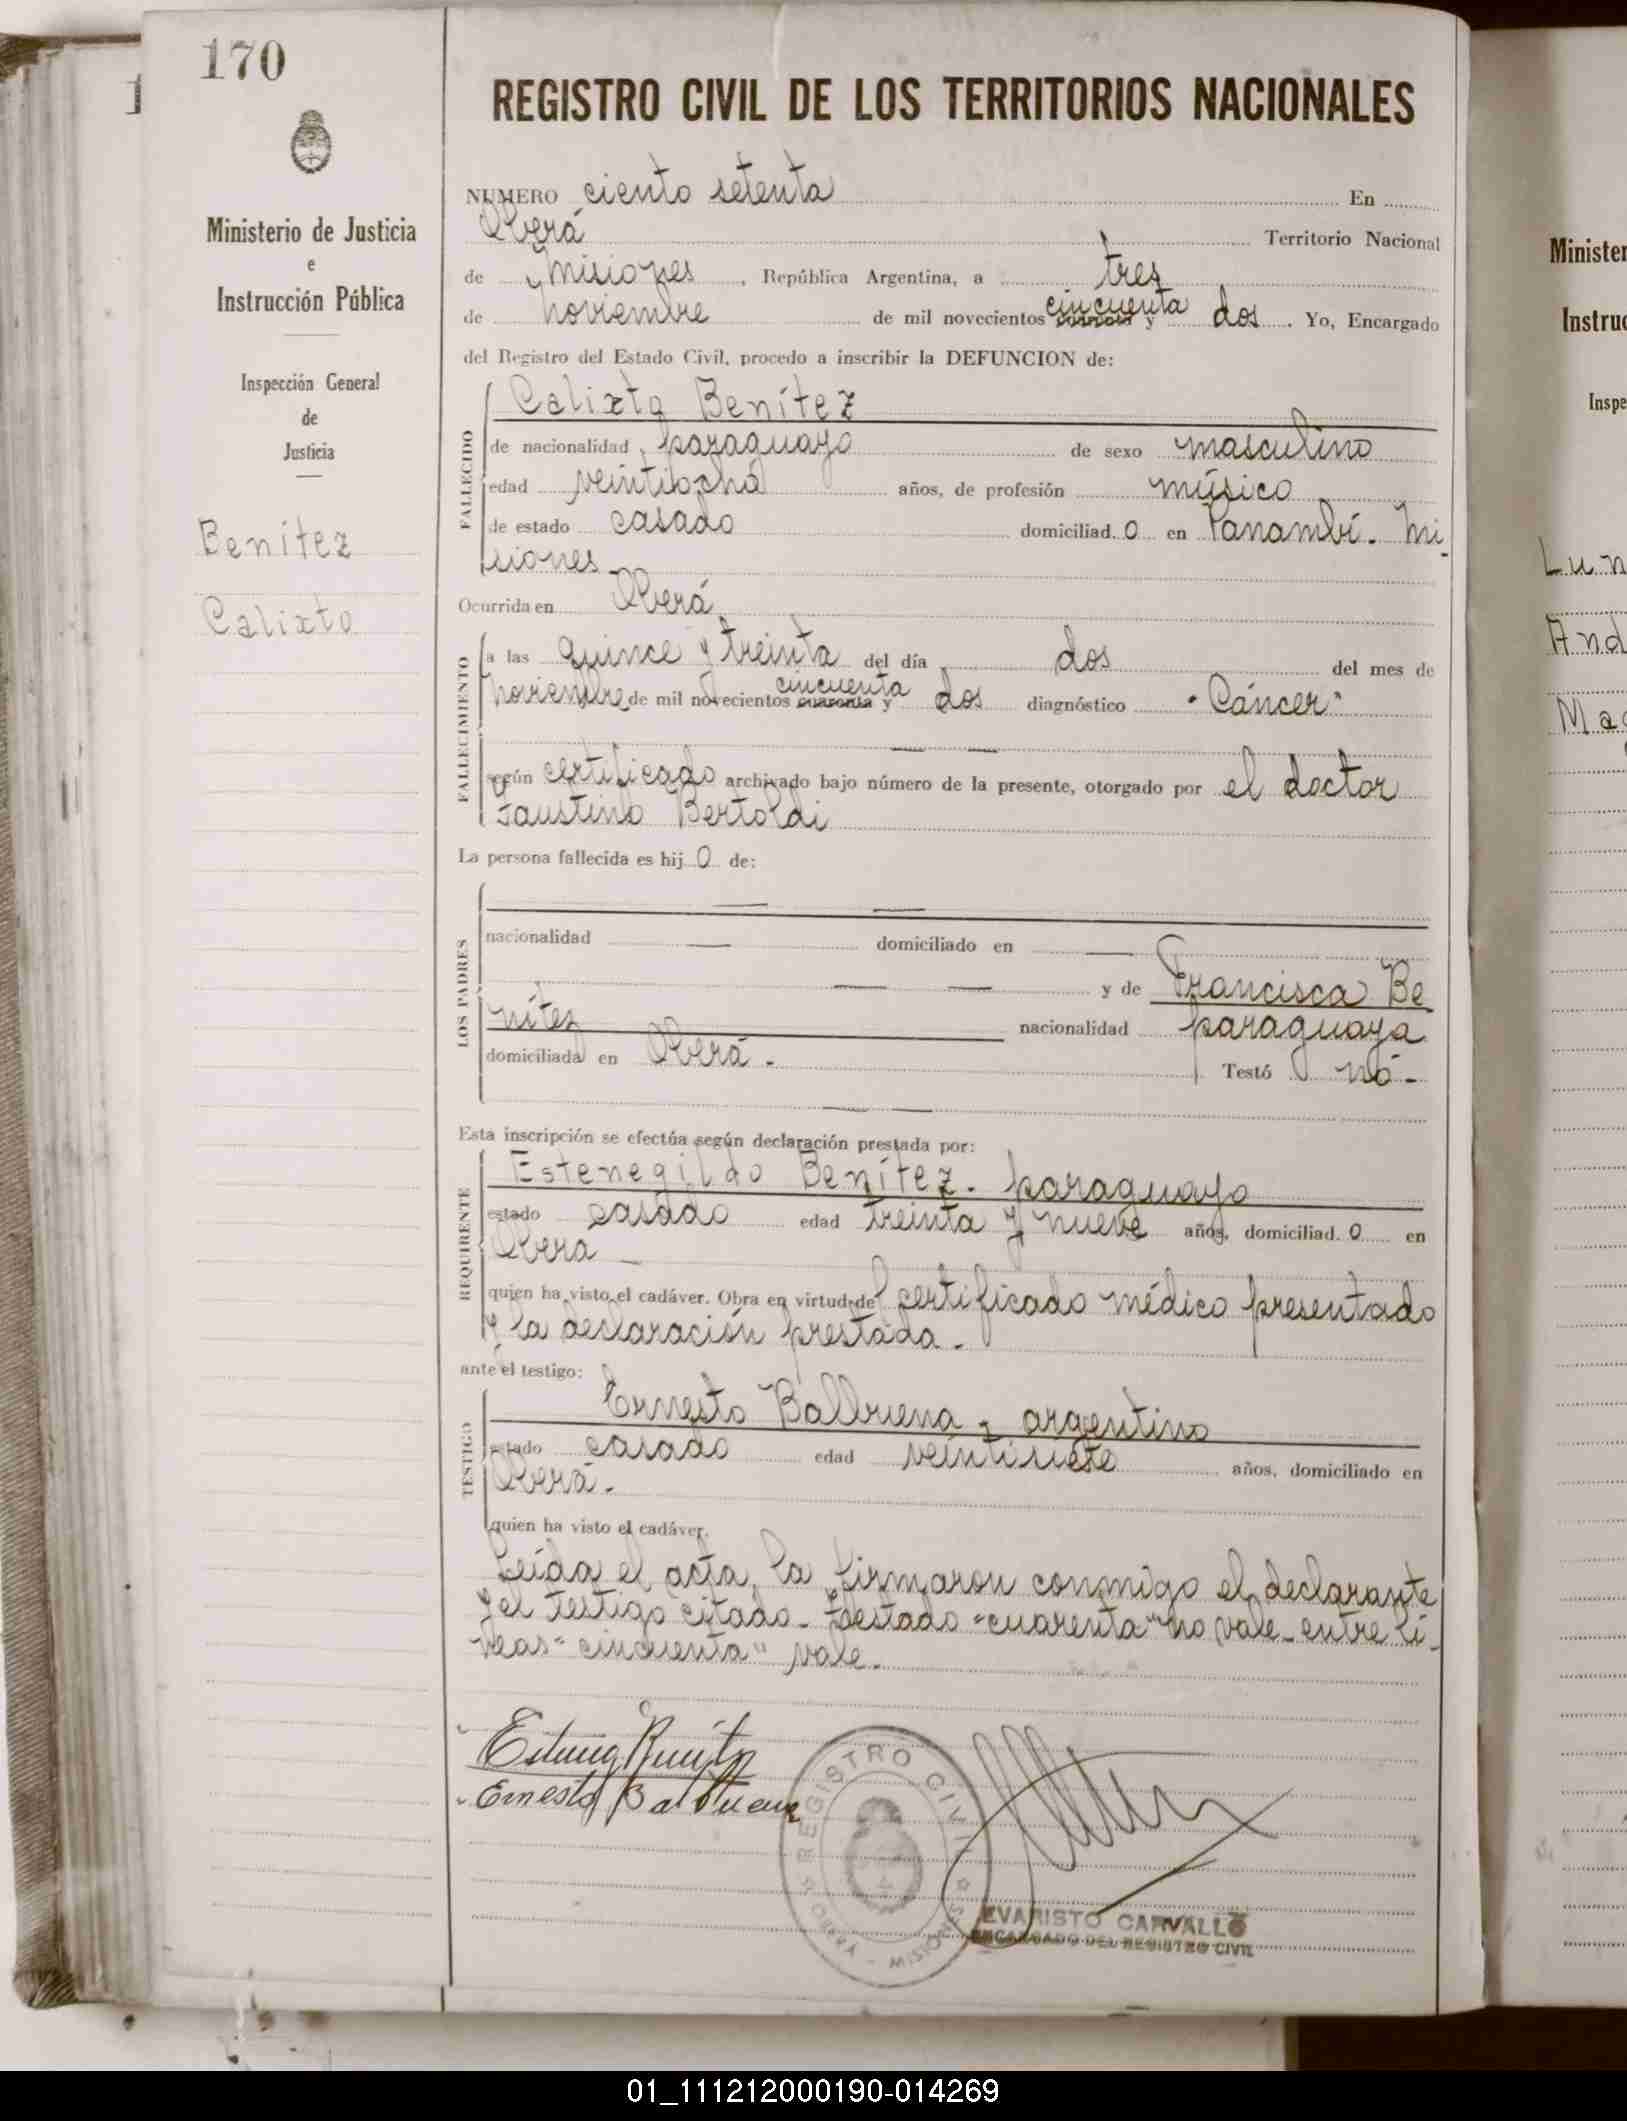 170
REGISTRO CIVIL DE LOS TERRITORIOS NACIONALES
Ministerio de Justicia
e
Instrucción Pública
Inspección General
de
Justicia
Benítez
Calixto
NUMERO ciento setenta En
Oberá Territorio Nacional
de Misiones, República Argentina, a tres
de noviembre de mil novecientos cuarenta cincuenta y dos. Yo, Encargado
del Registro del Estado Civil, procedo a inscribir la DEFUNCION de:
FALLECIDO
Calixto Benítez
de nacionalidad paraguayo de sexo masculino
edad veintiocho años, de profesión músico
de estado casado domiciliad.o en Panambí. Mi-
siones
Ocurrida en Oberá
FALLECIMIENTO
a las quince y treinta del día dos del mes de
noviembre de mil novecientos cuarenta cincuenta y dos diagnóstico "Cáncer"
según certificado archivado bajo número de la presente, otorgado por el doctor
Faustino Bertoldi
La persona fallecida es hij o de:
LOS PADRES
nacionalidad — domiciliado en —
— — y de Francisca Be
nítez nacionalidad paraguaya
domiciliada en Oberá. Testó nó-
Esta inscripción se efectúa según declaración prestada por:
REQUIRENTE
Estenegildo Benítez. paraguayo
estado casado edad treinta y nueve años, domiciliad.o en
Oberá
quien ha visto el cadáver. Obra en virtud de l certificado médico presentado
y la declaración prestada.-
ante el testigo:
TESTIGO
Ernesto Balbuena, argentino
estado casado edad veintisiete años, domiciliado en
Oberá.
quien ha visto el cadáver.
Leída el acta, la firmaron conmigo el declarante
y el testigo citado- Testado "cuarenta" no vale- entre lí-
neas "cincuenta" vale.
Benítez
Ernesto Balbuena
REGISTRO CIVIL
OBERÁ - MISIONES
EVARISTO CARVALLO
ENCARGADO DEL REGISTRO CIVIL
Minister
Instruc
Inspe
Lun
And
Mac
01_111212000190-014269